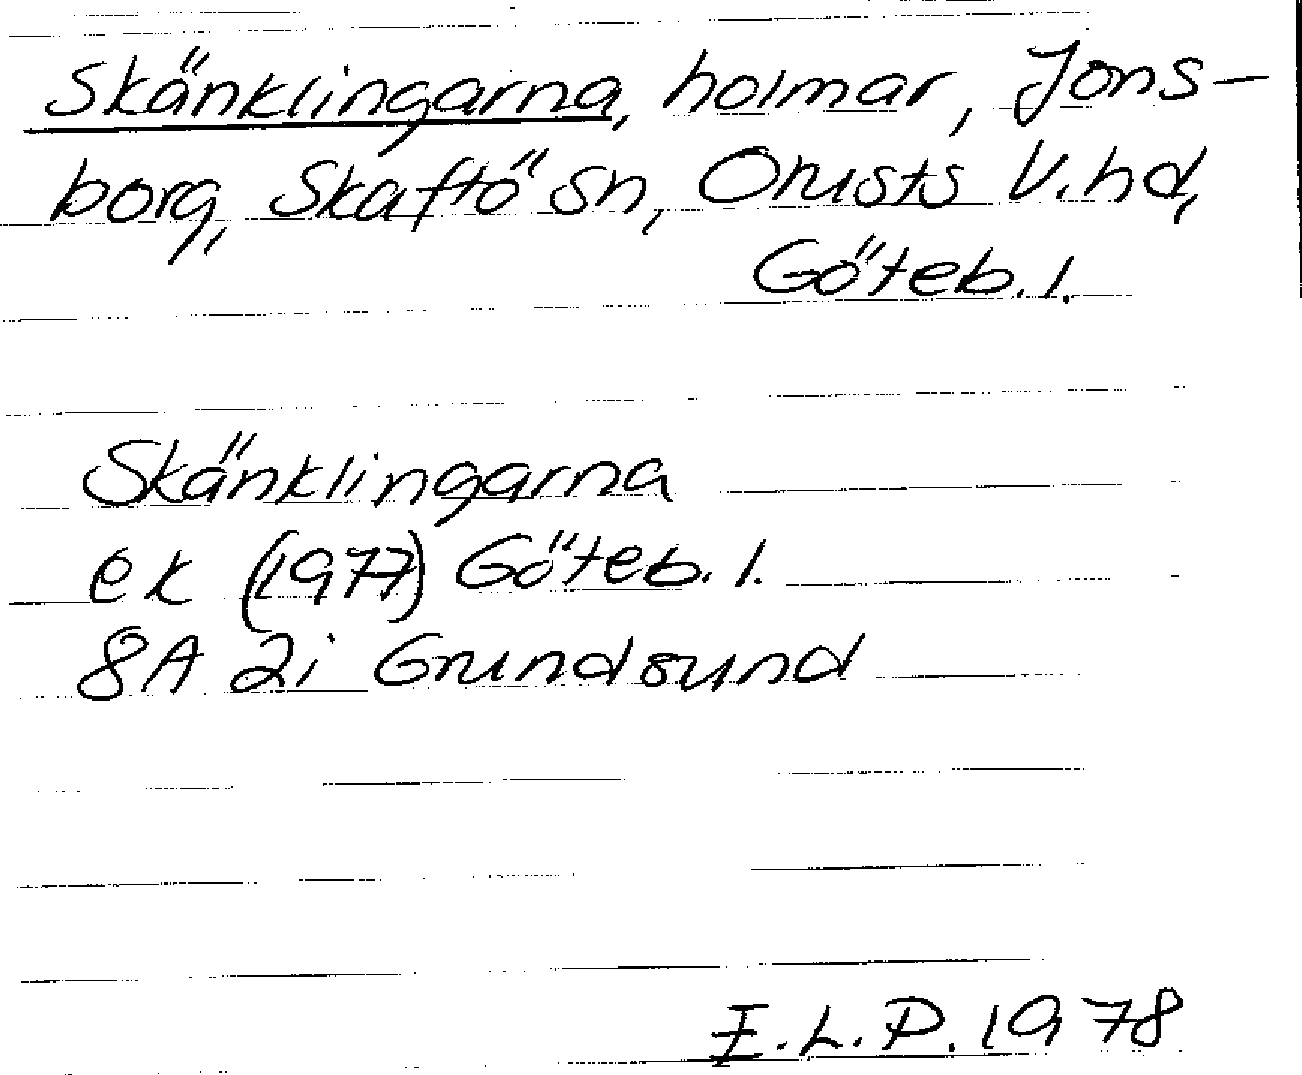 Skänklingarna, holmar, Jons-
borg, Skaftö sn, Orusts V. hd,
Göteb. l.
Skänklingarna
ek (1977) Göteb. l.
8A 2i Grundsund
I. L. P. 1978